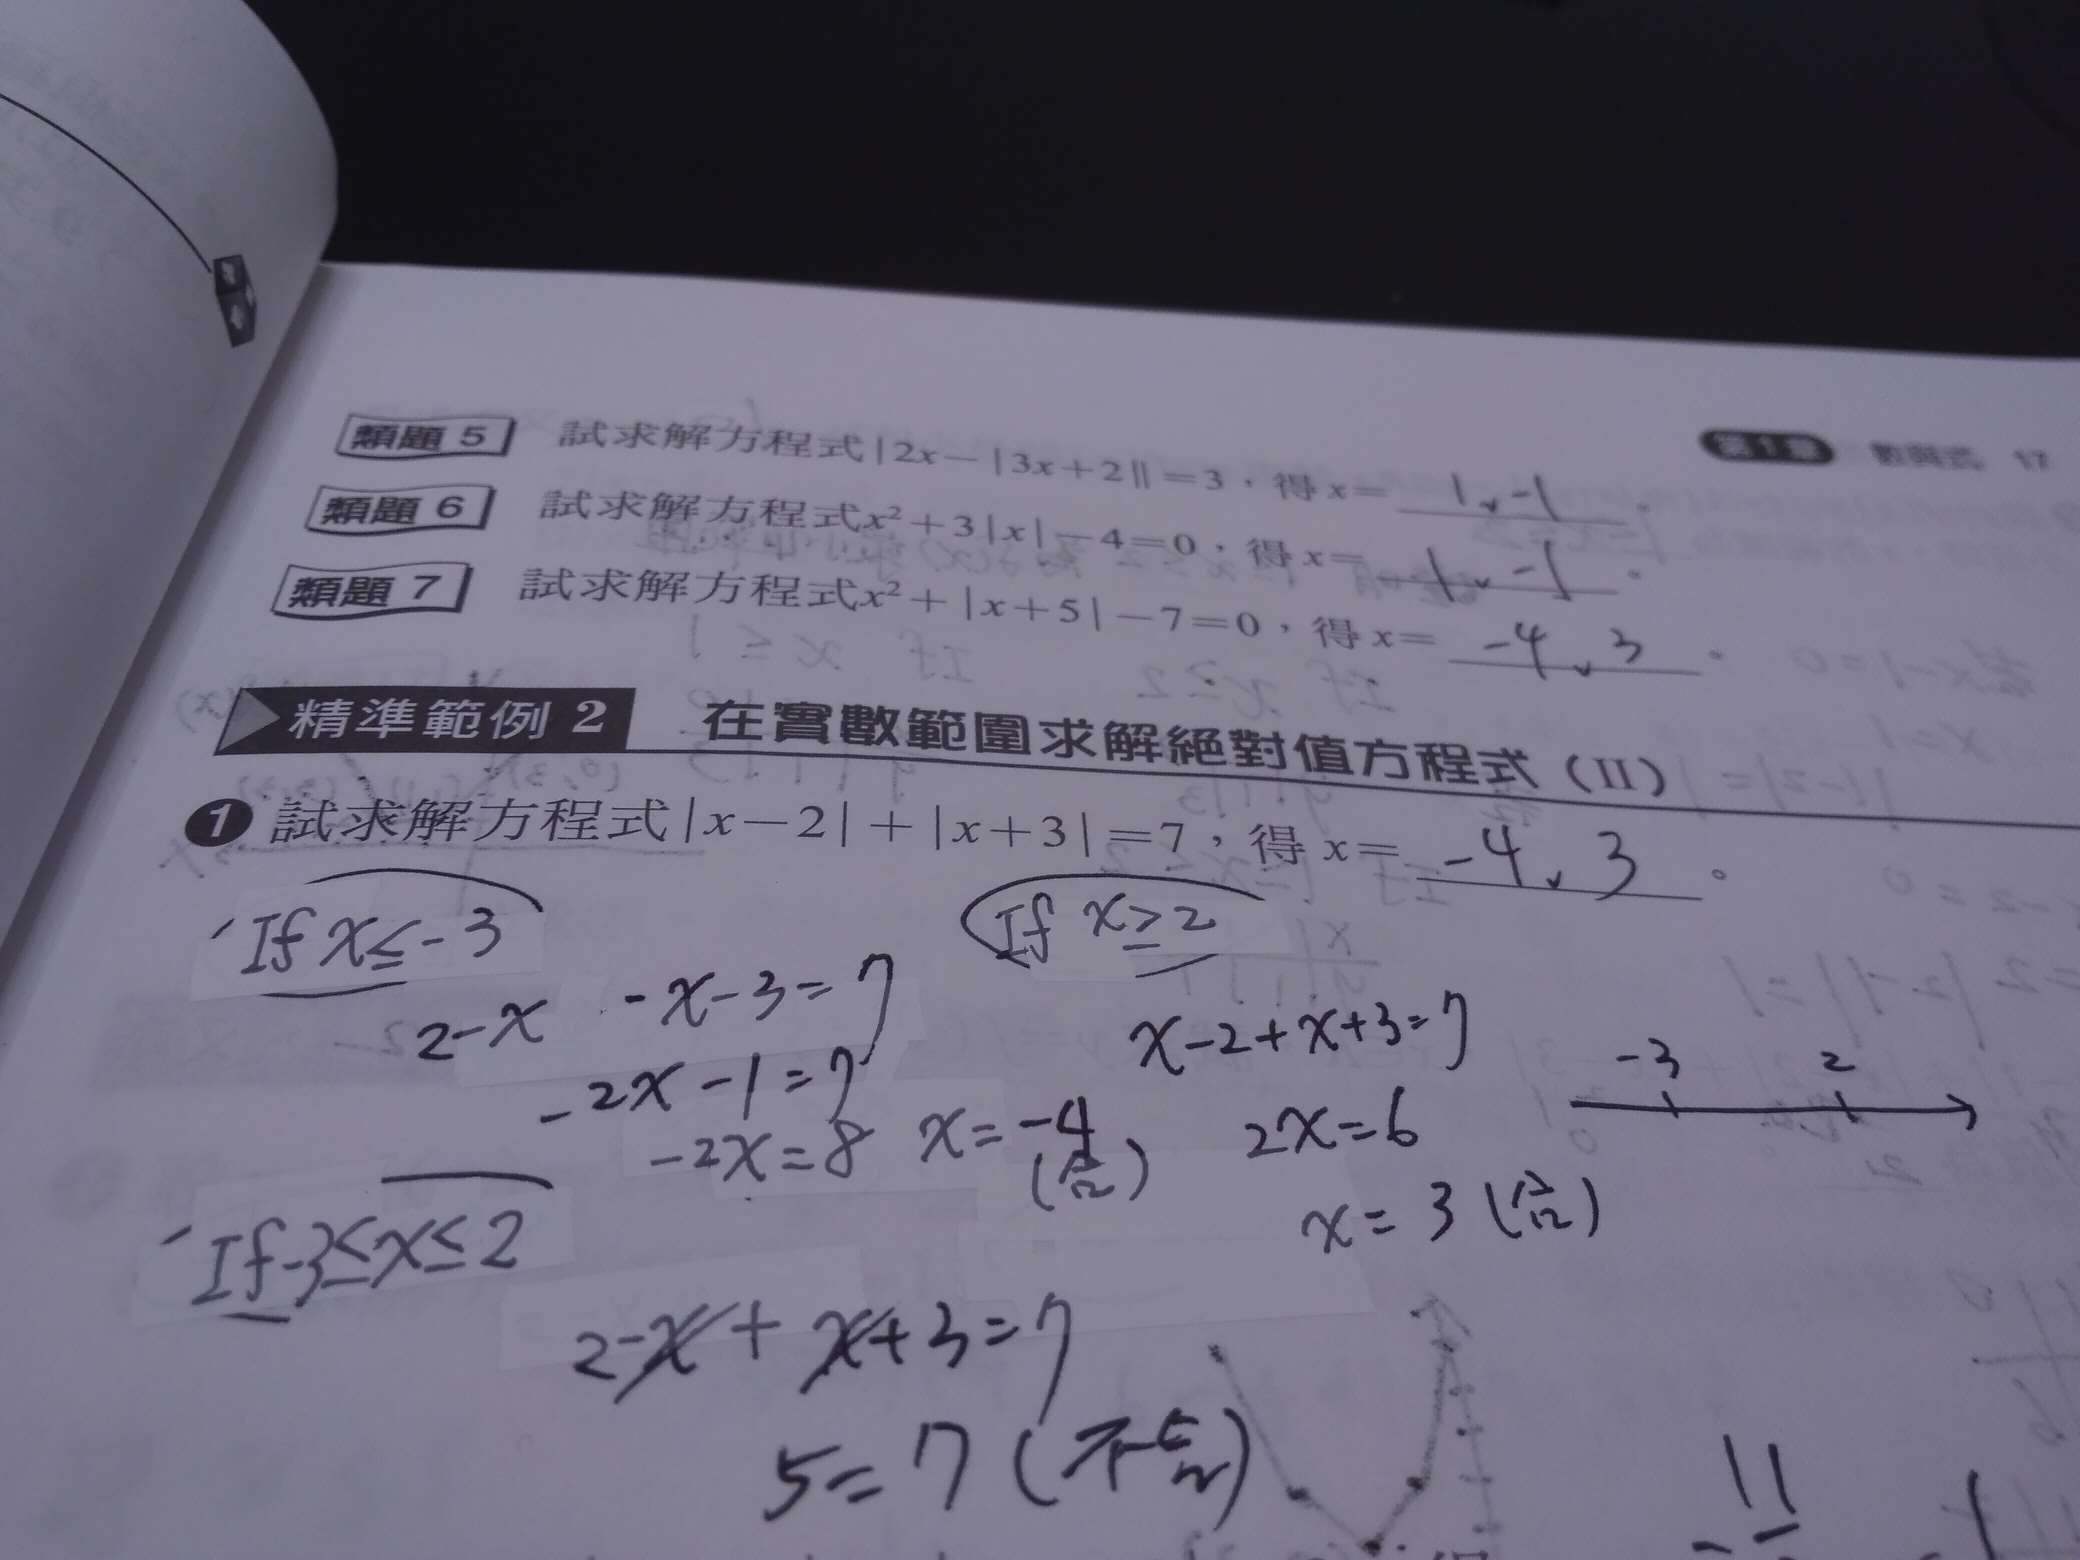 第1章 數與式 17
類題 5 試求解方程式|2x-|3x+2||=3，得 x= 1、-1 。
類題 6 試求解方程式x²+3|x|-4=0，得 x= 1、-1 。
類題 7 試求解方程式x²+|x+5|-7=0，得 x= -4、3 。
精準範例 2 在實數範圍求解絕對值方程式（II）
1 試求解方程式|x-2|+|x+3|=7，得 x= -4、3 。
If x≤-3
2-x -x-3=7
-2x-1=7
-2x=8 x=-4
(合)
If x≥2
x-2+x+3=7
2x=6
x=3 (合)
-3 2
If -3≤x≤2
2-x+x+3=7
5=7 (不合)
11